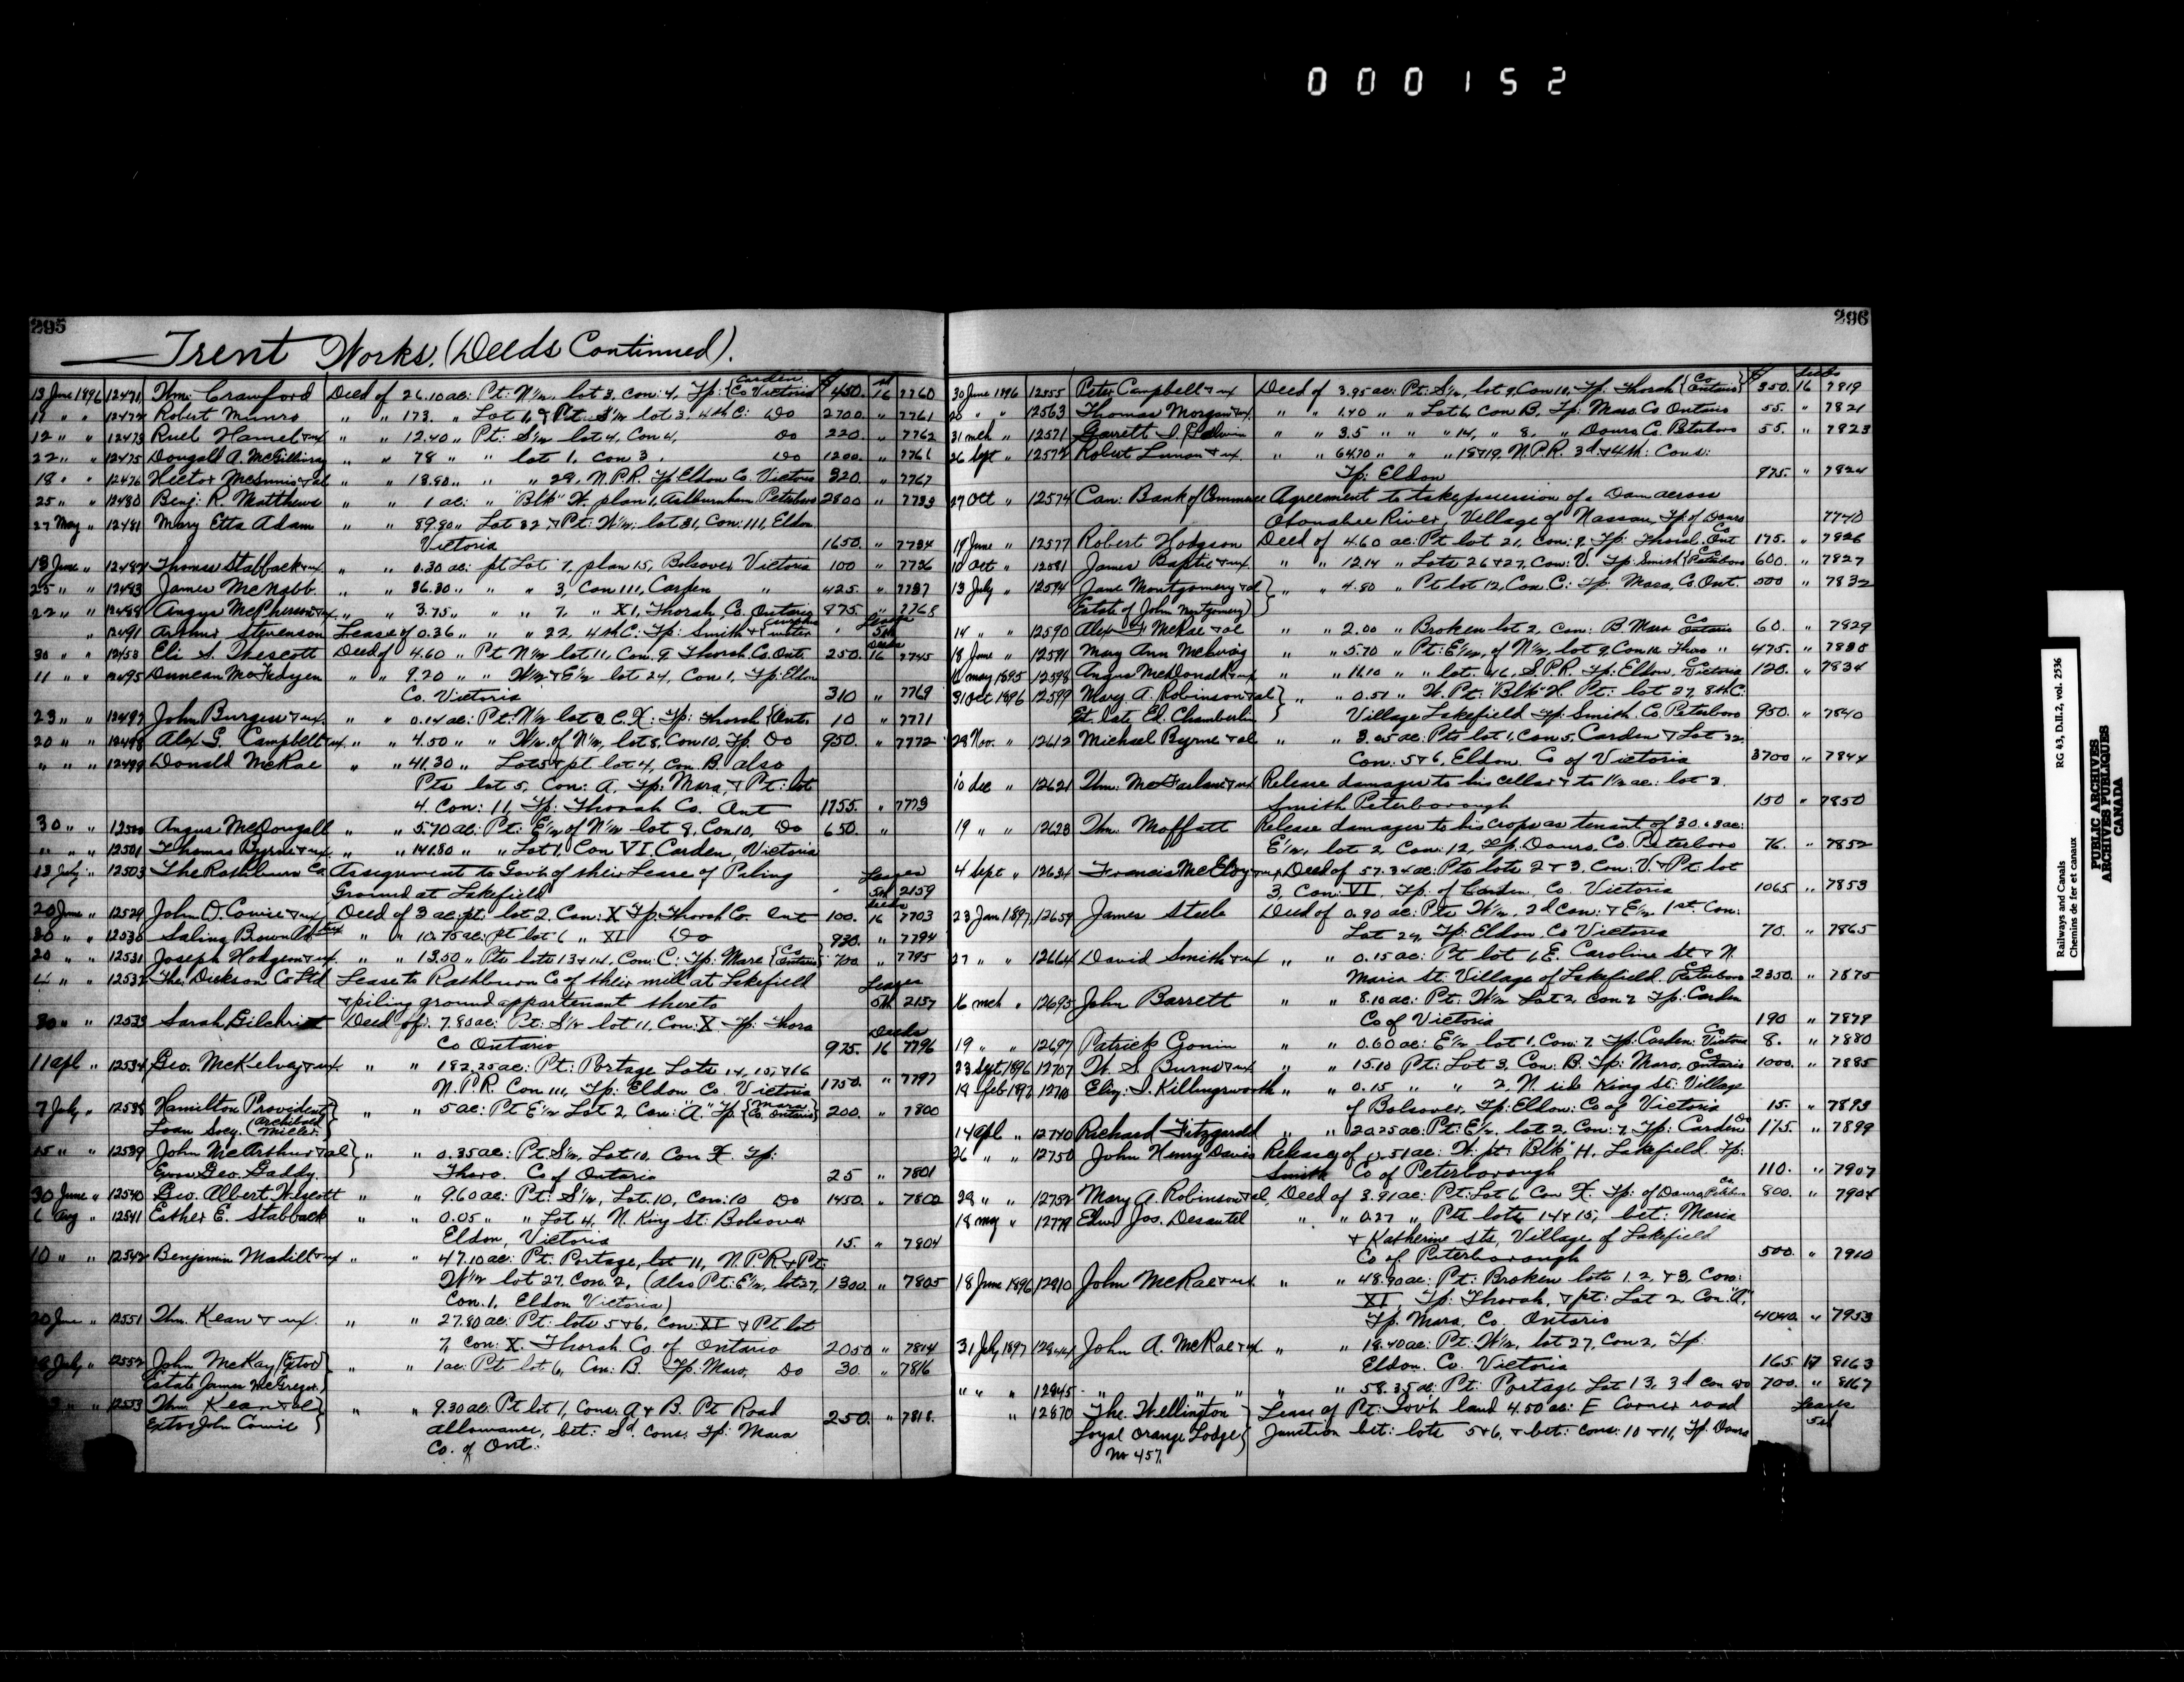 000152
295
Trent Works. (Deeds Continued).
13 June 1896 12471 Thm: Crawford Deed of 26.10 ac: Pt: N½, lot 3, con: 4, Tp: {Carden Co Victoria $ 450. 16 7760
11 " " 12472 Robert Munro " " 173. " Lot 1, & Pt: S½ lot 3. 4th C: Do 2700. " 7761
12 " " 12473 Ruel Hamel & ux " " 12.40 " Pt: S½ lot 4, Con 4, Do 220. " 7762
22 " " 12475 Dougall A. McGillivray " " 78 " " lot 1, con 3. Do 1200. "
18 " " 12476 Hector McInnis & al " " 18.90 " " " 29, N.P.R. Tp Eldon Co. Victoria 320. " 7767
25 " " 12480 Benj: R. Matthews " " 1 ac: " "Blk" H. plan 1, Ashburnham Peterboro 2800 " 7733
27 May " 12481 Mary Etta Adam " " 89.90 " Lot 32 & Pt: W½; lot 31, Con: 111, Eldon
Victoria 1650. " 7734
13 June " 12482 Thomas Stabback & ux " " 0.30 ac: pt Lot 7, plan 15, Bolsover Victoria 100 " 7736
25 " " 12483 James McNabb " " 36.30 " " " 3, Con 111, Carden " 425. " 7737
22 " " 12488 Angus McPherson & ux " " 3.75 " " " 7, " X1, Thorah, Co. Ontario 875. " 7768
" 12491 Arthur Stevenson Lease of 0.36 " " " 22, 4th C: Tp: Smith & {surplus water " Leases 5th
30 " " 12453 Eli S. Wescott Deed of 4.60 " Pt N½ lot 11, Con. 9 Thorah. Co. Ont. 250. Deeds 16 7745
11 " " 12495 Duncan McFadyen " " 9.20 " " W½ & E½ lot 24, Con 1, Tp: Eldon
Co. Victoria 310 " 7769
23 " " 12497 John Burgess & ux. " " 0.14 ac: Pt: N½ lot 9 C. X: Tp: Thorah {Ont. 10 " 7771
20 " " 12498 Alex G. Campbell & ux " " 4.50 " " W½ of N½, lot 8, Con 10, Tp. Do 950. " 7772
" " " 12499 Donald McRae " " 41.30 " Lot 5 & pt lot 4, con. B. also
Pts lot 5, Con: A. Tp: Mara, & Pt: lot
4. Con: 11, Tp: Thorah Co. Ont 1755. " 7773
30 " " 12500 Angus McDougall " " 5.70 ac: Pt: E½ of N½ lot 8, Con 10, Do 650. "
" " " 12501 Thomas Byrne & ux. " " 141.80 " " Lot 1, Con VI. Carden, Victoria
13 July " 12503 The Rathbun Co Assignment to Govt of their Lease of Piling
Ground at Lakefield " Leases 5th 2159
20 June " 12529 John D. Cowie & ux Deed of 3 ac: pt: lot 2, Con: X Tp: Thorah Co. Ont 100. Deeds 16 7703
30 " " 12530 Salina Brown " " 10.75 ac: pt lot 6 " XI Do 930. " 7794
20 " " 12531 Joseph Hodgson & ux. " " 13.50 " Pts lots 13 & 14, Con: C: Tp: Mara {Co Ontario} 700. " 7795
" " 12532 The Dickson Co Ltd Lease to Rathbun Co of their mill at Lakefield
& piling ground appartenant thereto Leases 5th 2157
30 " " 12533 Sarah Gilchrist Deed of: 7.80 ac: Pt: S½ lot 11, Con: X Tp: Thora
Co Ontario 975. Deeds 16 7796
11 apl " 12534 Geo. McKelvey & ux " " 182.25 ac: Pt: Portage Lots 14, 15, & 16
N.P.R. Con 111, Tp: Eldon Co. Victoria 1750. " 7797
7 July " 12538 Hamilton Provident " " 5 ac: Pt E½ Lot 2, Con: "A" Tp {Mara Co. Ontario} 200. " 7800
Loan Socy. (Archibald Miller.)
15 " " 12539 John McArthur & al } " " 0.35 ac: Pt S½, Lot 10, Con X Tp:
Exors Geo. Gaddy. Thora. Co of Ontario 25 " 7801
30 June " 12540 Geo. Albert Wescott " " 9.60 ac: Pt: S½, Lot 10, Con: 10 Do 1450. " 7802
6 Aug " 12541 Esther E. Stabback " " 0.05 " " Lot 4, N. King St: Bolsover
Eldon, Victoria 15. " 7804
10 " " 12542 Benjamin Madill & ux " " 47.10 ac: Pt. Portage, lot 11, N.P.R & Pt:
W½ lot 27, Con. 2, (Also Pt: E½, lot 27, 1300. " 7805
Con. 1, Eldon Victoria)
20 June " 12551 Thm. Kean & ux. " " 27.80 ac: Pt: lots 5 & 6, Con: XI & Pt lot
7, Con: X. Thorah Co. of Ontario 2050 " 7814
July " 12552 John McKay (Extor) " " 1 ac: Pt lot 6, Con: B. Tp: Mara, Do 30. " 7816
Estate James McGregor.)
" " 12553 Thm Kean & al } " " 9.30 ac: Pt lot 1, Cons: A & B. Pt Road 250. " 7818.
Extors John Cowie } allowance, bet: Sd. Cons: Tp: Mara
Co. of Ont:
296
30 June 1896 12555 Peter Campbell & ux Deed of 3.95 ac: Pt: S½, lot 9, Con 11, Tp: Thorah {Co Ontario} $ 350. Deeds 16 7819
20 " " 12563 Thomas Morgan & ux. " " 1.40 " " Lot 6, Con B, Tp: Mara Co Ontario 55. " 7821
31 mch " 12571 Garrett " " 3.5 " " " 14, " 8, " Douro Co. Peterboro 55. " 7823
26 Sept " 12572 Robert & ux. " " 64.70 " " " 18 & 19, N.P.R. 3d & 4th: Cons:
Tp: Eldon 975. " 7824
27 Oct " 12574 Can: Bank of Commerce Agreement to take possession of a Dam across
Otonabee River, Village of Nassau, Tp. of Douro 7740
19 June " 12577 Robert Hodgson Deed of 4.60 ac: Pt lot 21, Con: 9. Tp: Thorah Co Ont 175. " 7826
10 Oct " 12581 James Baptie & ux. " " 12.14 " Lots 26 & 27, Con: V. Tp: Smith {Co Peterboro 600. " 7827
13 July " 12594 Jane Montgomery & al } " " 4.80 " Pt lot 12, Con. C: Tp: Mara, Co. Ont. 500 " 7832
Estate of John Montgomery)
14 " " 12590 Alex McRae & al " " 2.00 " Broken lot 2, Con: B. Mara Co Ontario 60. " 7829
18 June " 12591 Mary Ann McEvoy " " 5.70 " Pt: E½, of N½, lot 9, Con 10 Thora " 475. " 7830
11 May 1895 12598 Angus McDonald & ux " " 11.10 " " lot. 46, S.P.R. Tp: Eldon, Co Victoria 120. " 7834
31 Oct 1896 12599 Mary A. Robinson & al } " " 0.51 " W. Pt. "Blk" H. Pt: lot 27, 8th C.
Est. late Ed. Chamberlin } Village Lakefield Tp: Smith. Co. Peterboro 950. " 7840
28 Nov. " 12612 Michael Byrne & al " " 3.05 ac: Pts lot 1, Con 5, Carden & Lot 32,
Con: 5 & 6, Eldon Co of Victoria 3700 " 7844
10 dec " 12621 Thm: McFarlane & ux Release damages to his cellar & to 1½ ac: lot 2.
Smith Peterborough 150 " 7850
19 " " 12623 Thm. Moffatt Release damages to his crops as tenant of 30.63 ac:
E½, lot 2, Con: 12, Tp. Douro, Co. Peterboro 76. " 7852
4 Sept " 12634 Francis McElroy & ux Deed of 57.34 ac: Pts lots 2 & 3, Con: V. & Pt: lot
3, Con: VI, Tp. of Carden, Co. Victoria 1065 " 7853
23 Jan 1897 12659 James Steele Deed of 0.90 ac: Pts W½, 2d Con: & E½ 1st Con:
Lot 29, Tp: Eldon Co Victoria 70. " 7865
27 " " 12664 David Smith & ux " " 0.15 ac: Pt lot 6 E. Caroline St & N.
Maria St. Village of Lakefield. Co Peterboro 2350. " 7875
16 mch " 12695 John Barrett " " 8.10 ac: Pt: W½ Lot 2 Con 7 Tp: Carden
Co of Victoria 190 " 7879
19 " " 12697 Patrick Gonin " " 0.60 ac: E½ lot 1. Con: 7. Tp: Carden: Co Victoria 8. " 7880
23 Sept 1896 12707 W. S. Burns & ux " " 15.10 Pt: Lot 3, Con: B. Tp: Mara, Co Ontario 1000. " 7885
19 feb 1897 12710 Eliz: J. Killingsworth " " 0.15 " " " 2, N. side King St: Village
of Bolsover, Tp: Eldon: Co of Victoria 15. " 7893
14 apl " 12740 Richard Fitzgerald " " 20.25 ac: Pt: E½, lot 2, Con: 7, Tp: Carden Do 175. " 7899
26 " " 12750 John Henry Davis Release of 0.51 ac: W. pt: "Blk" H. Lakefield Tp:
Smith Co of Peterborough 110. " 7907
29 " " 12752 Mary A. Robinson & al Deed of 3.91 ac: Pt: Lot 6 Con X. Tp: of Douro Co Peterboro 800. " 7904
18 may " 12779 Edw: Jos. Desautel " " 0.27 " Pts lots 14 & 15, bet: Maria
& Katherine Sts, Village of Lakefield
Co of Peterborough 500. " 7910
18 June 1896 12810 John McRae & ux " " 48.90 ac: Pt: Broken lots 1, 2, & 3, Con:
XI, Tp: Thorah, & pt: Lot 2, Con: "A",
Tp: Mara, Co. Ontario 4040. " 7953
31 July 1897 12844 John A. McRae & ux " " 18.40 ac: Pt: W½, lot 27, Con 2, Tp
Eldon. Co. Victoria 165. 17 8163
" " " 12845 " " " " " 58.35 ac: Pt: Portage Lot 13, 3d Con Do 700. " 8167
" 12870 The Wellington } Lease of Pt: Govt land 4.50 ac: E Corner road Leases
Loyal Orange Lodge } Junction bet: lots 5 & 6, & bet: cons: 10 & 11, Tp. Douro 5th
No 457.
Railways and Canals RG 43, D.II.2, vol. 2536
Chemins de fer et canaux
PUBLIC ARCHIVES
ARCHIVES PUBLIQUES
CANADA